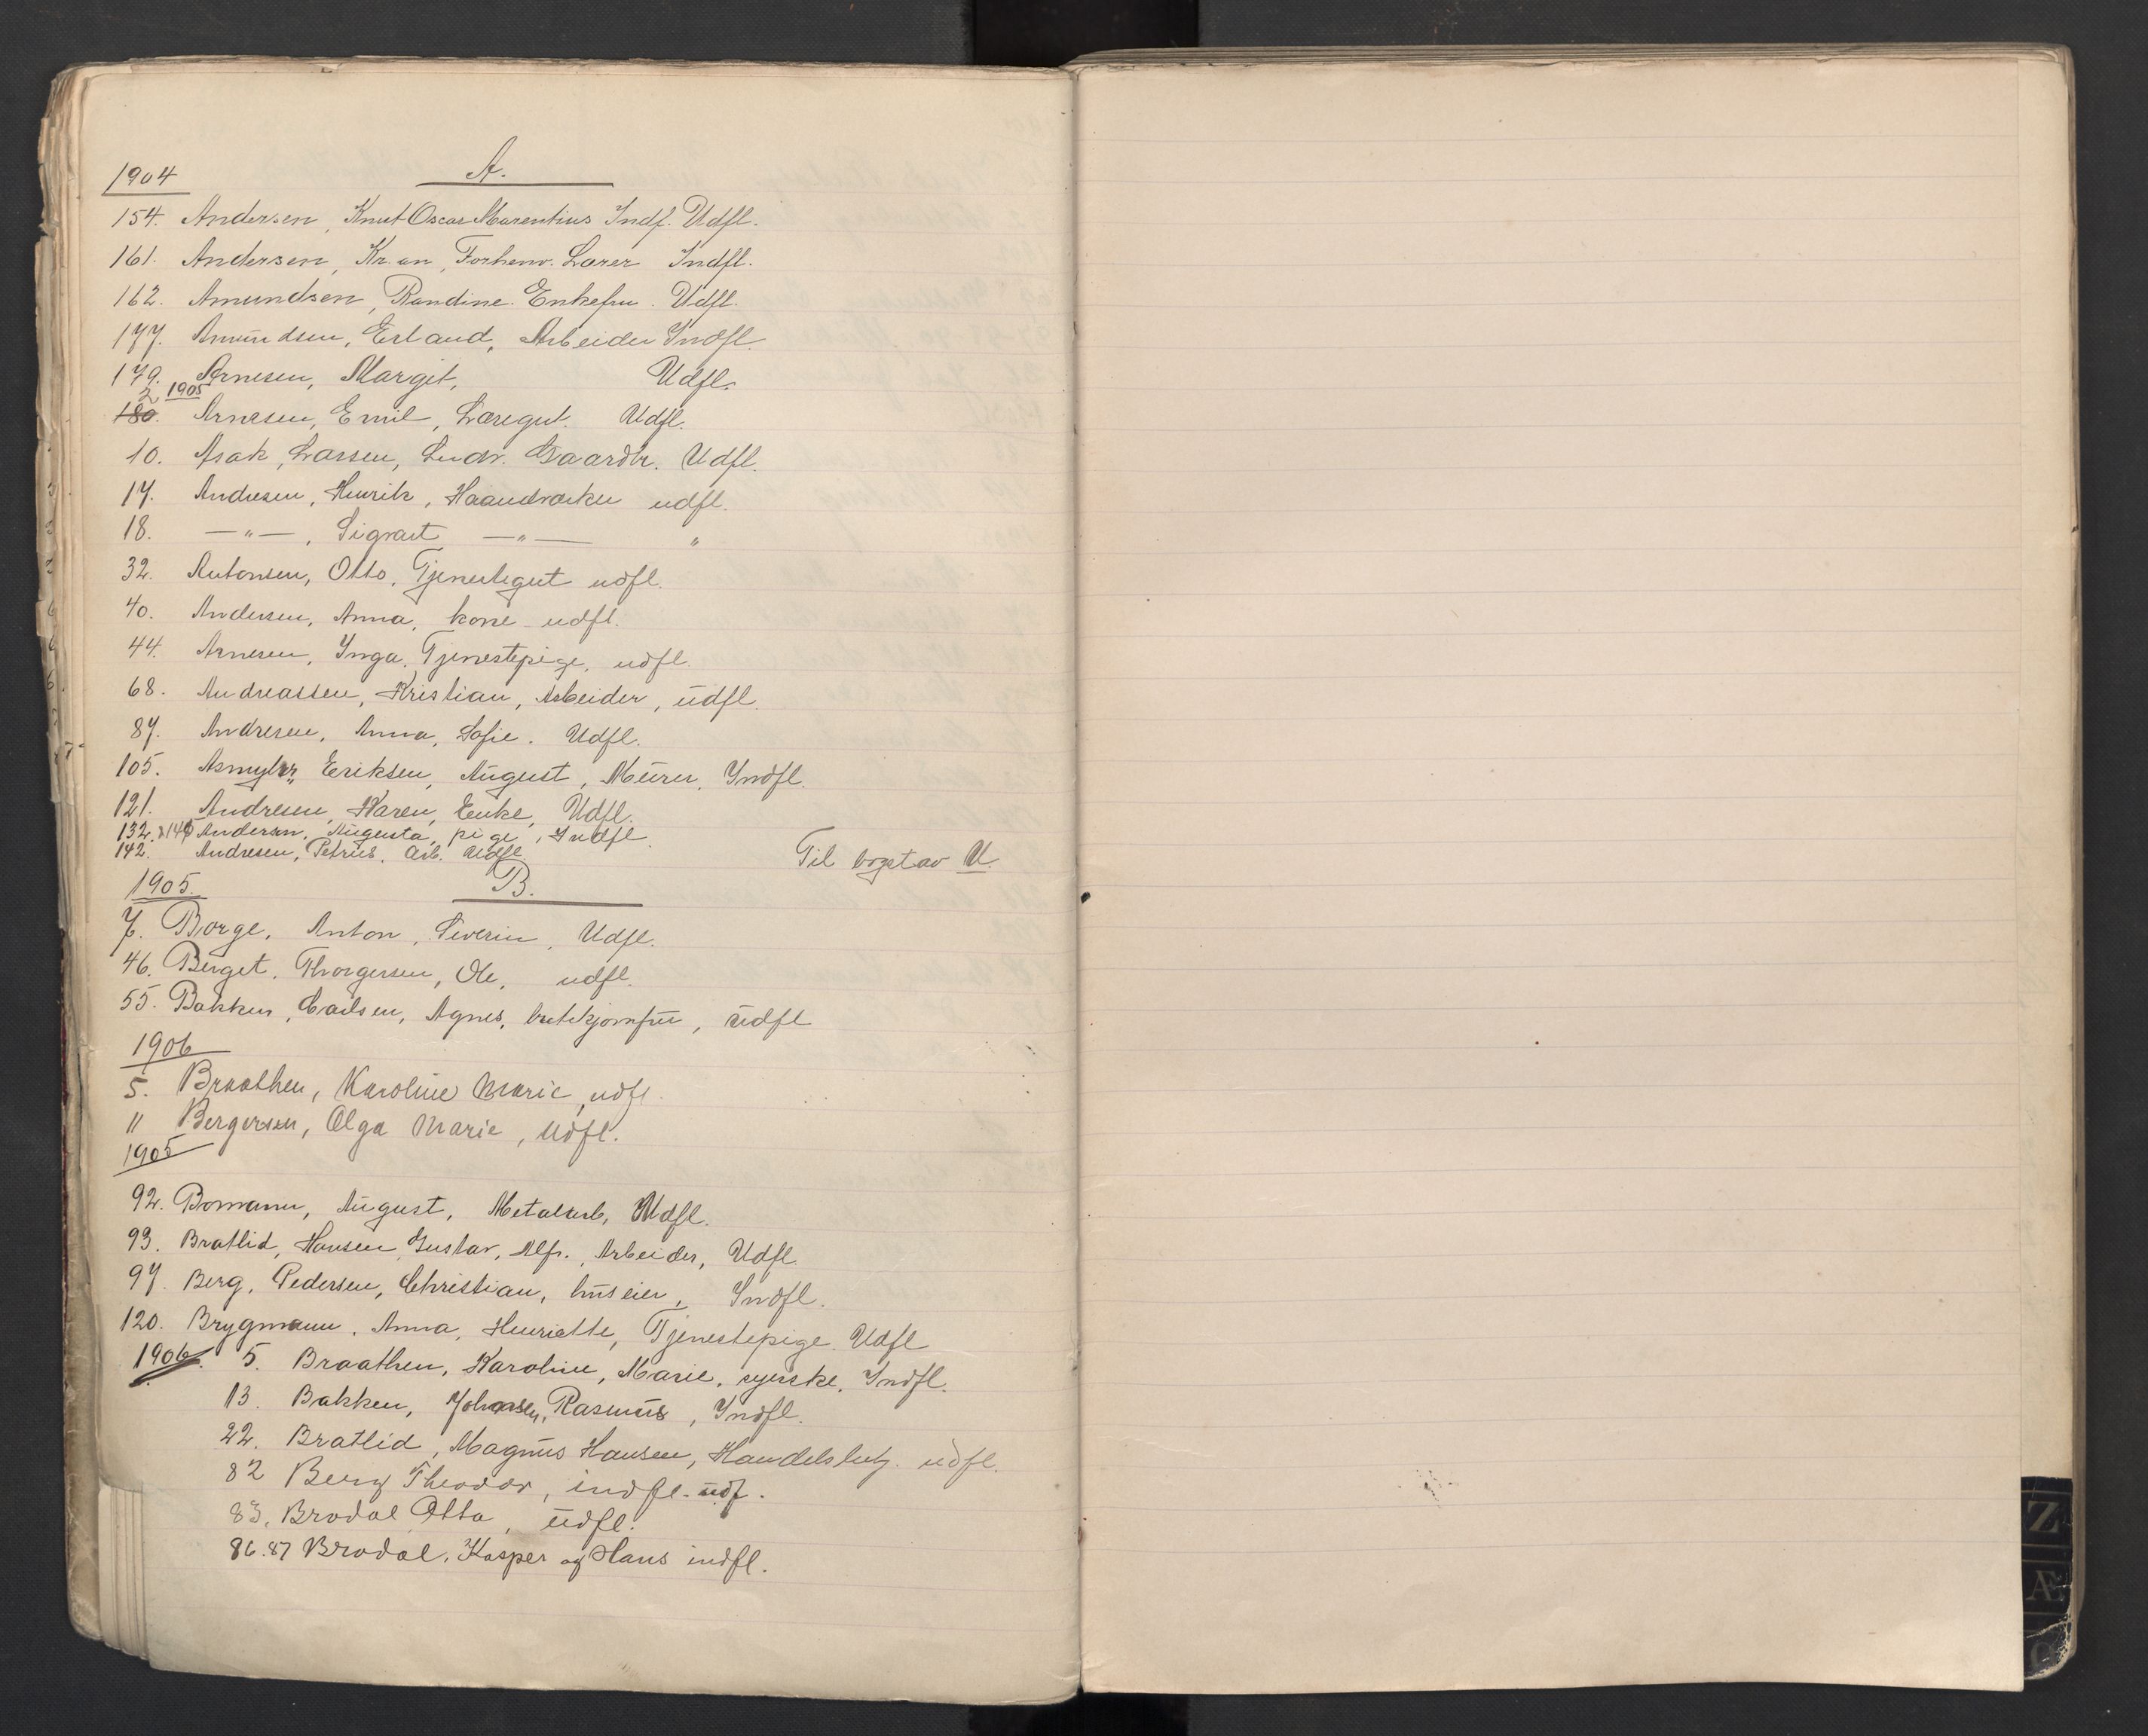 A.
1904
154. Andersen, Knut Oscar Marentius Indf. Udfl.
161. Andersen, Kr. an, Forhenv. Lærer Indfl.
162. Amundsen, Randine. Enkefru. Udfl.
177. Amundsen, Erland, Arbeider Indfl.
179. Arnesen, Margit, Udfl.
2 1905
180. Arnesen, Emil, Læregut. Udfl.
10. Asak, Larsen, Ludv. Gaardbr. Udfl.
17. Andresen, Henrik, Haandværker udfl.
18. —"—, Sigvart —"— "
32. Antonsen, Otto, Tjenestegut udfl.
40. Andersen, Anna, kone udfl.
44. Arnesen, Inga. Tjenestepige, udfl.
68. Andreassen, Kristian, Arbeider, udfl.
87. Andresen, Anna, Sofie. Udfl.
105. Asmyhr, Eriksen, August, Murer, Indfl.
121. Andresen, Karen, Enke, Udfl.
132. Andersen, Augusta, pige, Indfl.
142. Andresen, Petrus, Arb. Udfl.
Til bogstav U.
1905. B.
7. Borge, Anton, Severin, Udfl.
46. Berget, Thorgersen, Ole, udfl.
55. Bakken, Carlsen, Agnes, butikjomfru, udfl
1906
5. Braathen, Karoline Marie, udfl.
" Bergersen, Olga Marie, Udfl.
1905
92. Bomann, August, Metalarb, Udfl.
93. Bratlid, Hansen, Gustav, Alfr., Arbeider, Udfl.
97. Berg, Pedersen, Christian, huseier, Indfl.
120. Brygmann, Anna, Henriette, Tjenestepige. Udfl
1906. 5. Braathen, Karoline, Marie, syerske, Indfl.
13. Bakken, Johansen, Rasmus, Indfl.
22. Bratlid, Magnus Hansen, Handelsbetj. udfl.
82 Berg Theodor, indfl. udf.
83. Brodal Otto, udfl.
86.87 Brodal, Kasper og Hans indfl.
Z
Æ